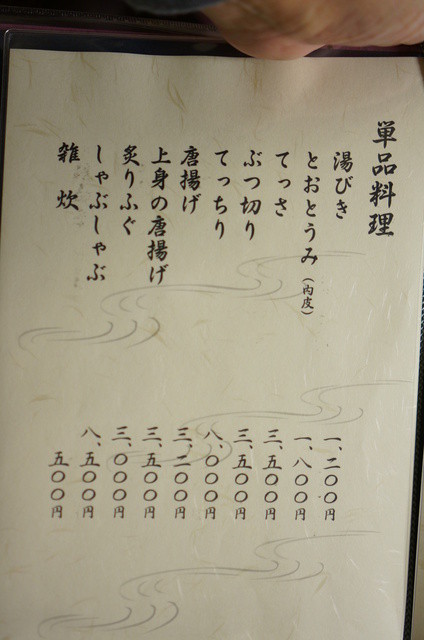 単品料理
湯びき 一、二〇〇円
とおとうみ(内皮) 一、八〇〇円
てっさ 三、五〇〇円
ぶつ切り 三、五〇〇円
てっちり 八、〇〇〇円
唐揚げ 三、二〇〇円
上身の唐揚げ 三、五〇〇円
炙りふぐ 三、〇〇〇円
しゃぶしゃぶ 八、五〇〇円
雑炊 五〇〇円